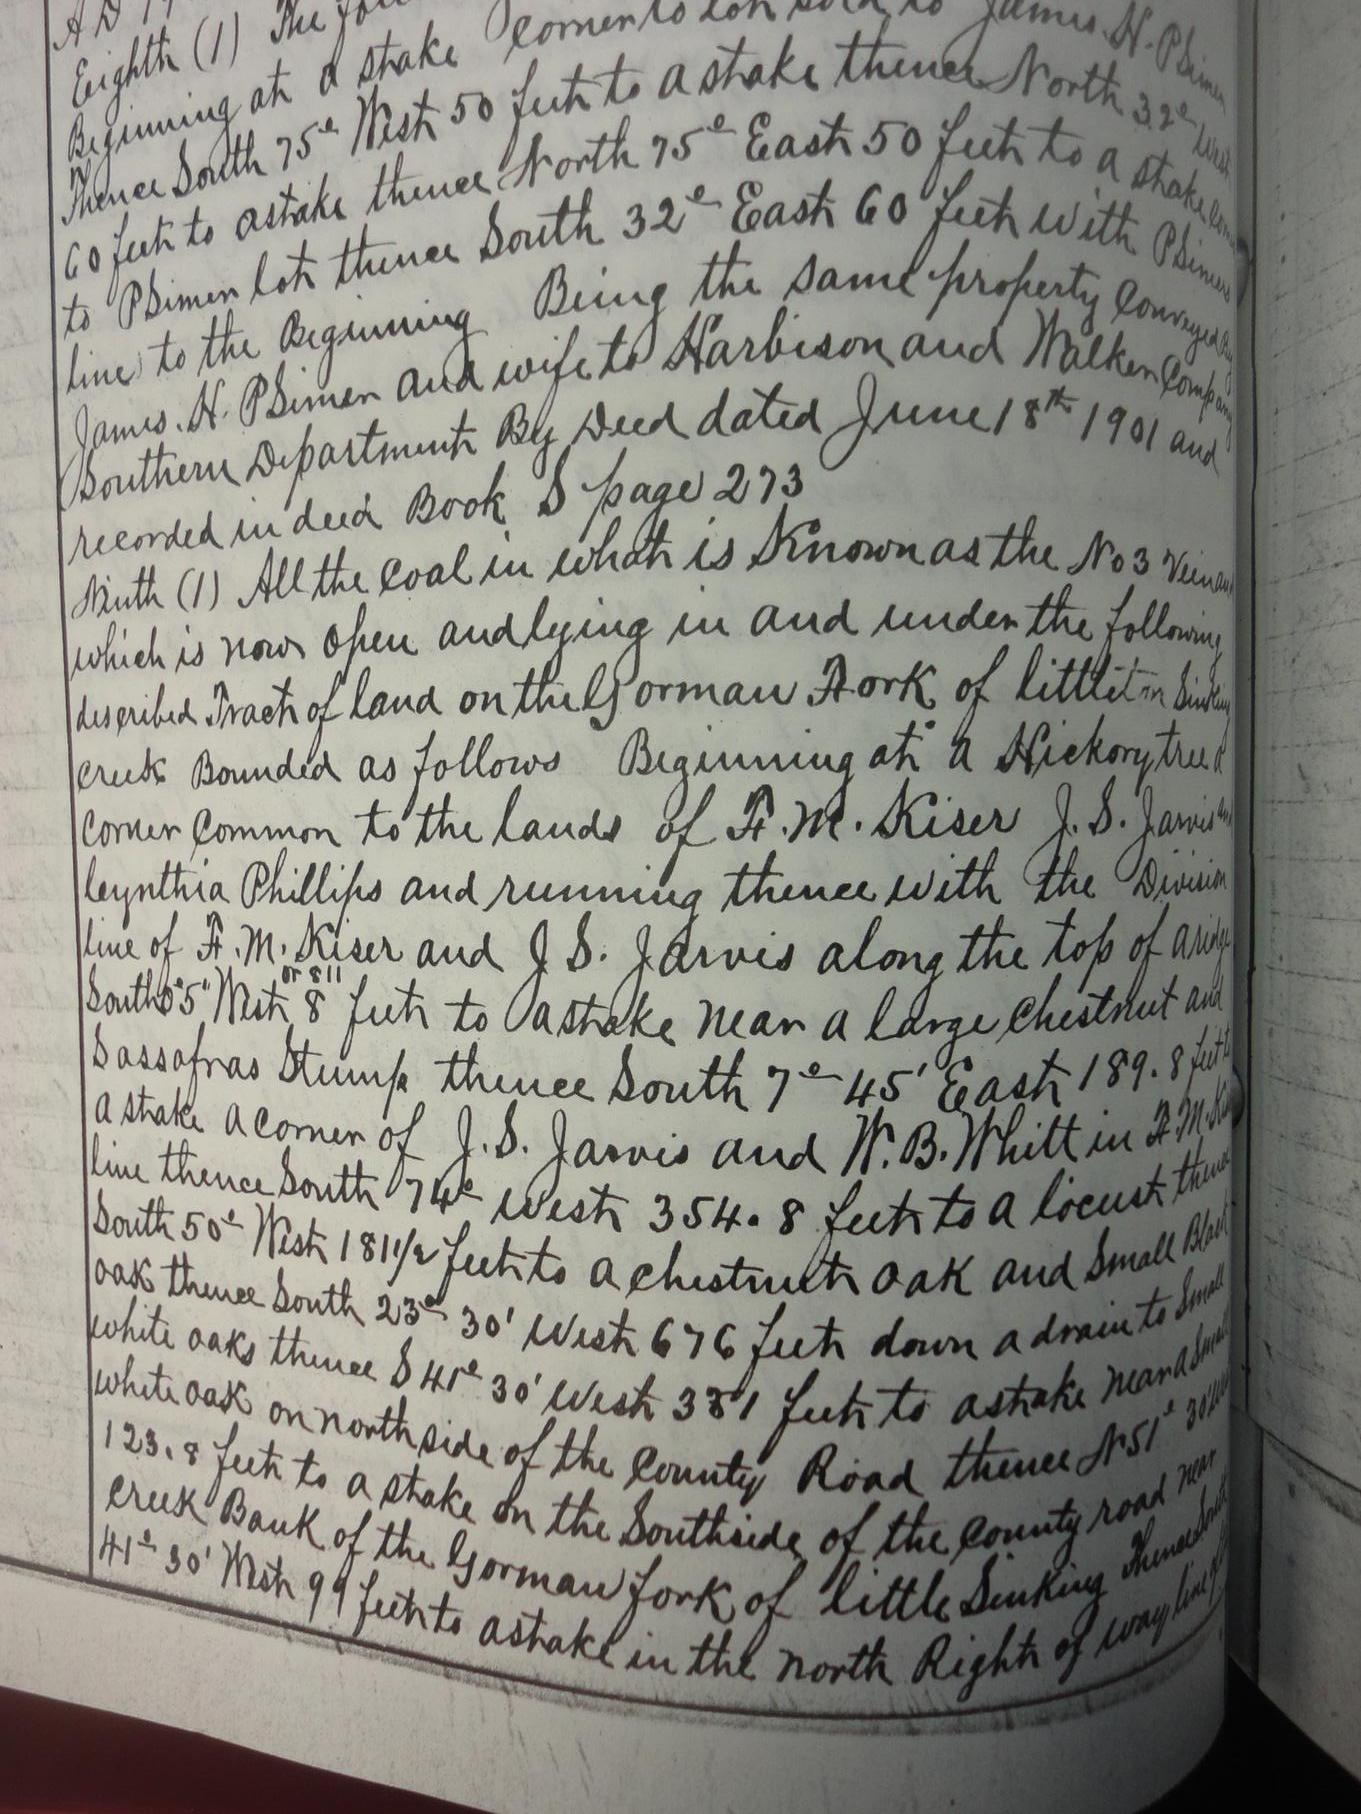 A D
Eighth (1) The
Beginning at a stake corner to lot sold to James. H. PSimer
Thence South 75° West 50 feet to a stake thence North 32° West
60 feet to a stake thence North 75° East 50 feet to a stake
to PSimer lot thence South 32° East 60 feet with PSimers
line to the Beginning Being the same property conveyed by
James. H. PSimer and wife to Harbison and Walker Company
Southern Department By Deed dated June 18th 1901 and
recorded in deed Book S page 273
Ninth (1) All the coal in what is Known as the No 3 Vein and
which is now open and lying in and under the following
described Tract of land on the Gorman Fork of little Sinking
creek Bounded as follows Beginning at a Hickory tree a
corner common to the lands of F. M. Kiser J. S. Jarvis and
Cynthia Phillips and running thence with the Division
line of F. M. Kiser and J S. Jarvis along the top of a ridge
or 811
South 5" West 8 feet to a stake near a large chestnut and
Sassafras Stump thence South 7° 45' East 189.8 feet to
a stake a corner of J. S. Jarvis and W. B. Whitt in F. M.
line thence South 74° West 354.8 feet to a locust thence
South 50° West 181 1/2 feet to a chestnut oak and small Black
oak thence South 23° 30' West 676 feet down a drain to small
white oaks thence S 41° 30' West 331 feet to a stake near a small
white oak on north side of the County Road thence N 51° 30'
123.8 feet to a stake on the South side of the county road near
creek Bank of the Gorman fork of little Sinking Thence South
41° 30' West 99 feet to a stake in the north Right of way line